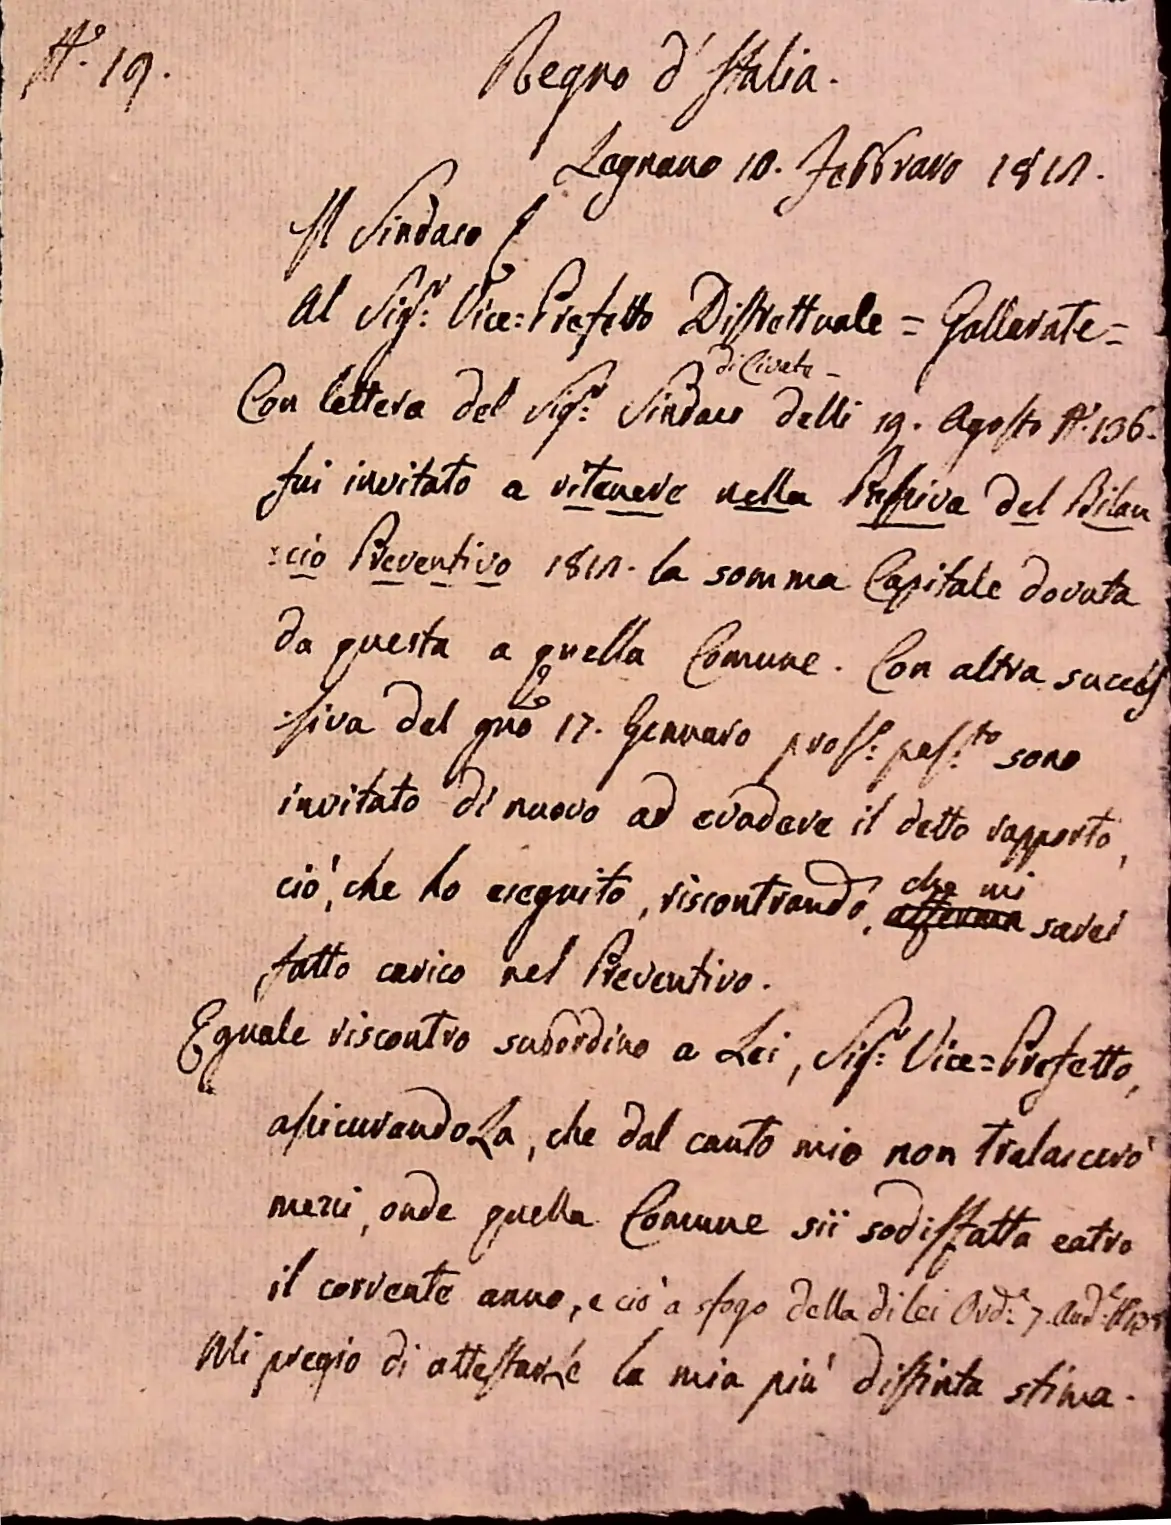 N.° 19.
Regno d'Italia.
Legnano 10. Febbraro 1811.
Il Sindaco
Al Sig.r Vice=Prefetto Distrettuale = Gallarate =
di Civate -
Con lettera del Sig.r Sindaco delli 19. Agosto N.° 136.
fui invitato a ritenere nella Passiva del Bilan
=cio Preventivo 1811. la somma Capitale dovuta
da questa a quella Comune. Con altra succes
siva del giorno 17. Gennaro pros.° pas.to sono
invitato di nuovo ad evadere il detto rapporto,
ciò, che ho eseguito, riscontrando, che mi sarei
fatto carico nel Preventivo.
Eguale riscontro subordino a Lei, Sig.r Vice=Prefetto,
assicurandoLa, che dal canto mio non tralascerò
mezzi, onde quella Comune sii sodisfatta entro
il corrente anno, e ciò a sfogo della di lei Ord.a 7. And.e
Mi pregio di attestarLe la mia più distinta stima.